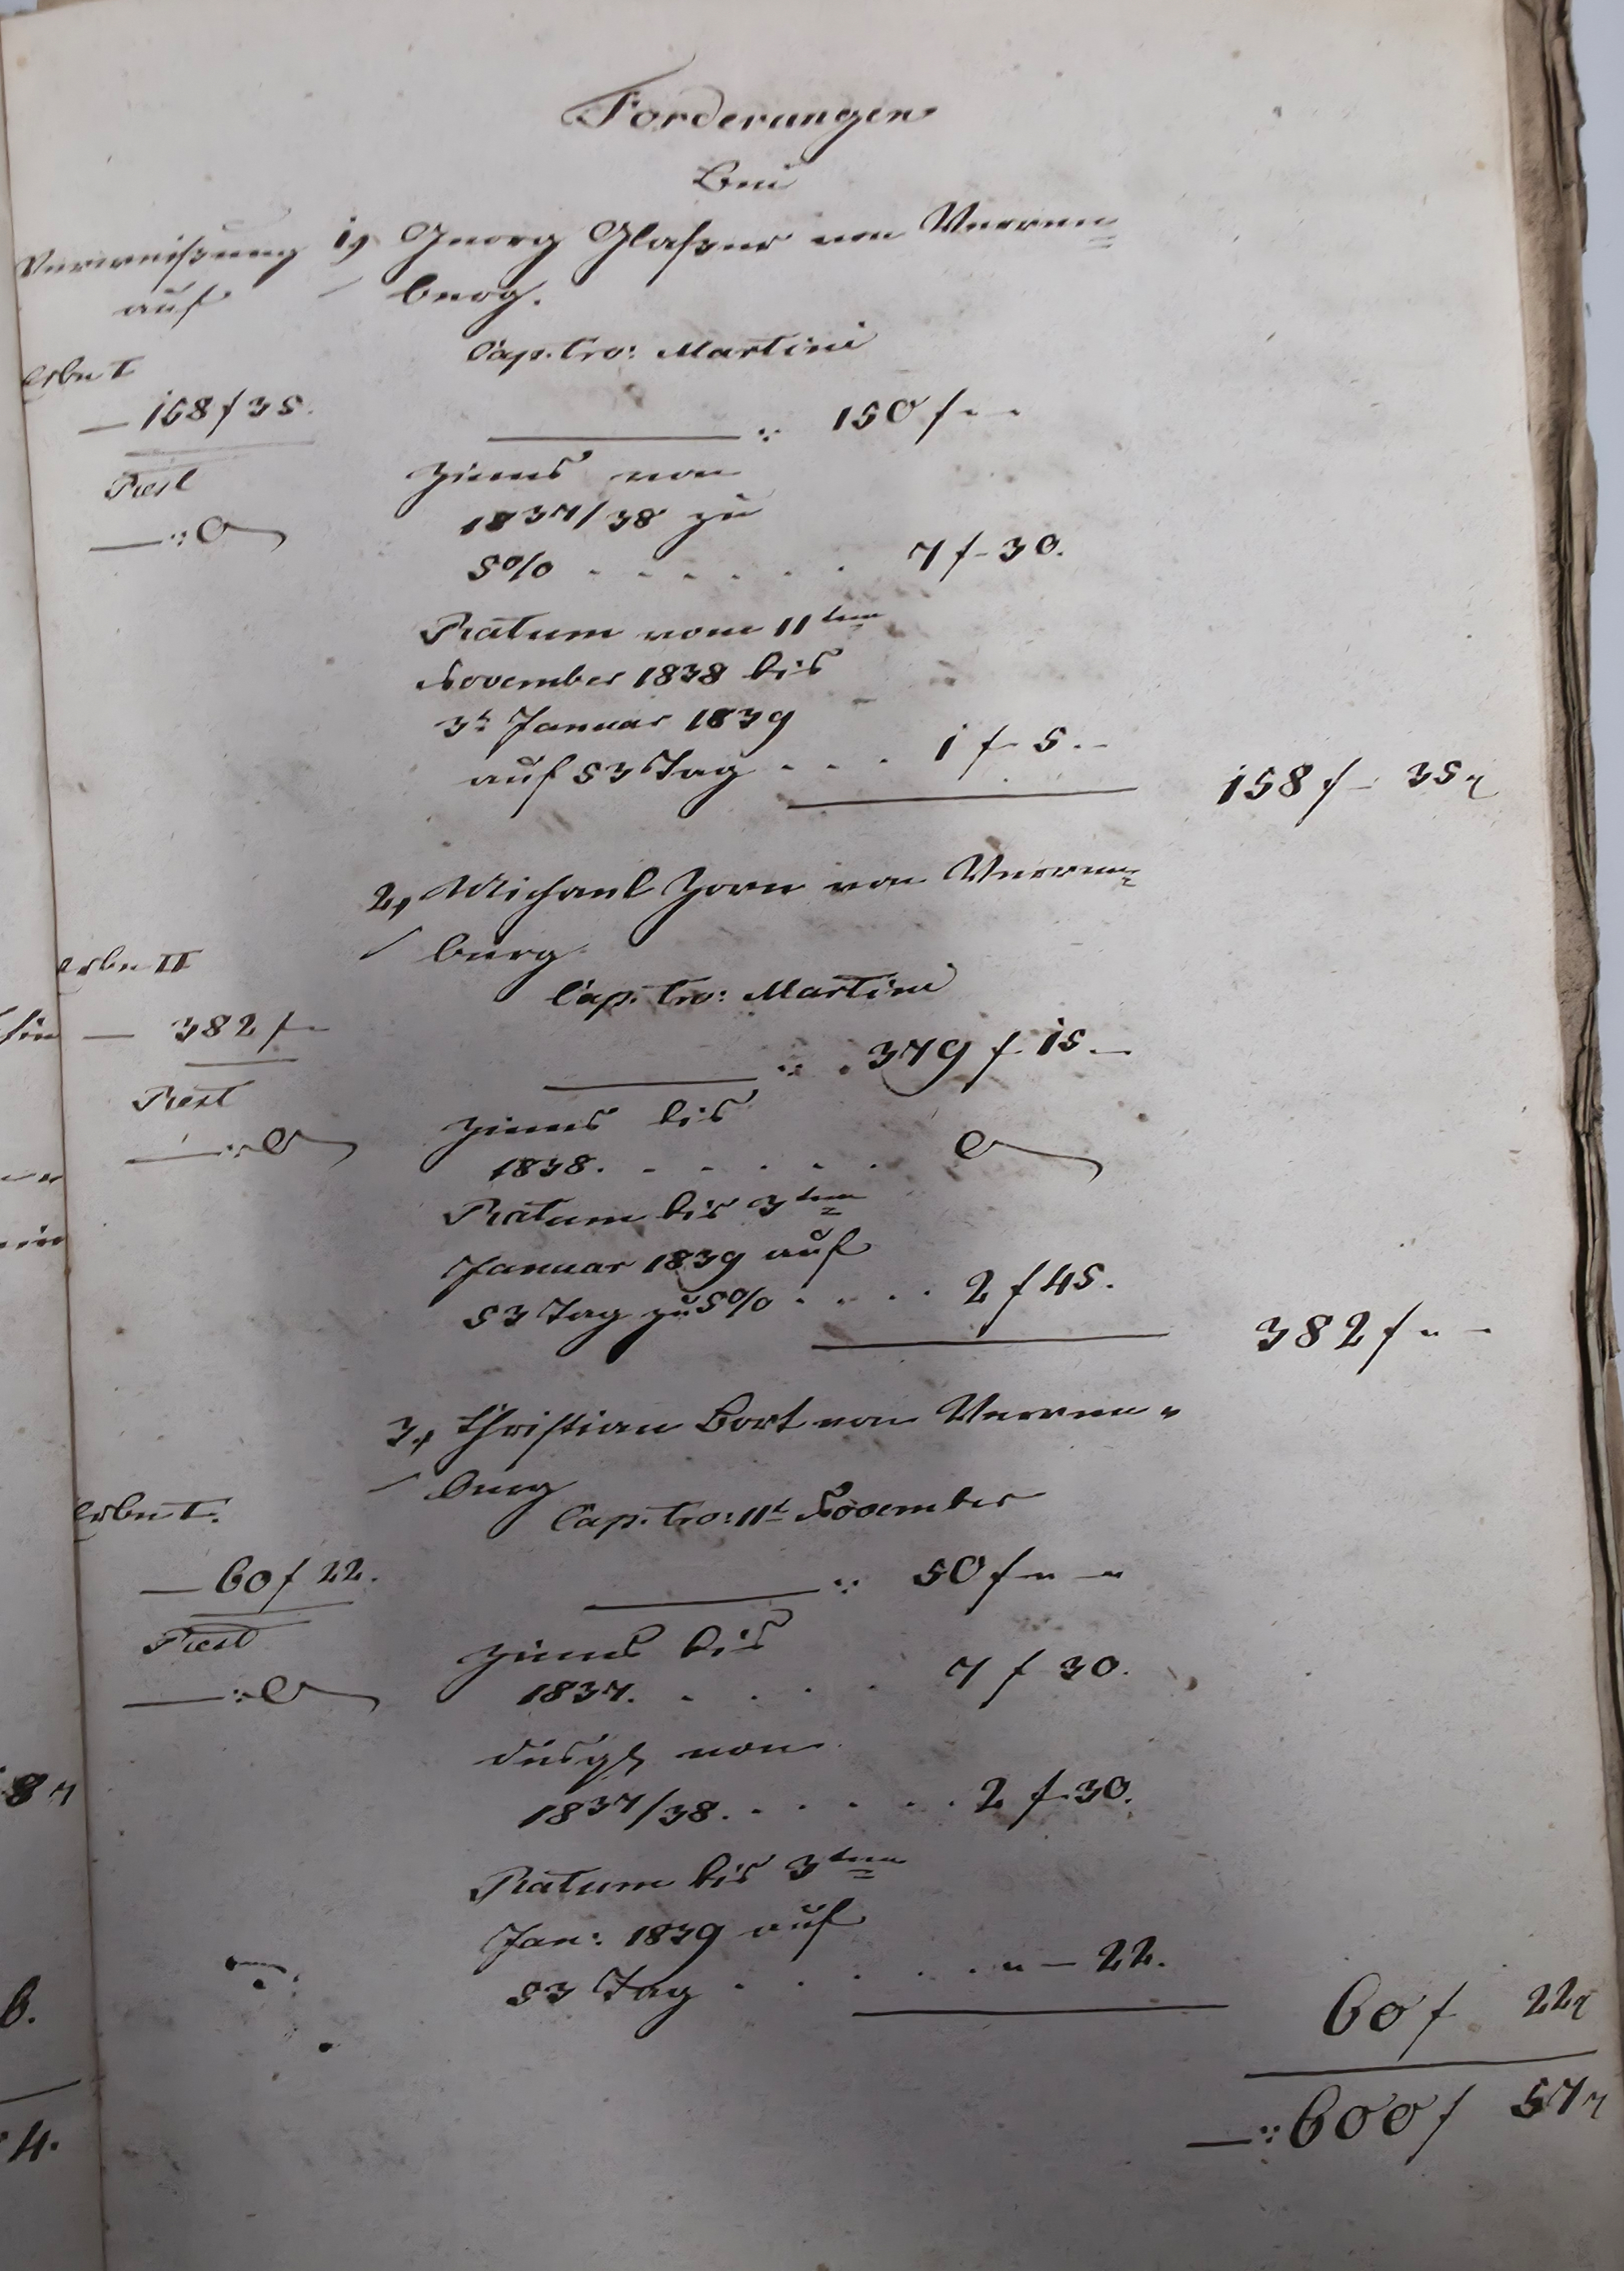 Forderungen
Bei
Verweisung
auf
1, Georg Glasser von Verren=
berg.
Cap. tro: Martini
Erbe I
— 158 f 35.
——— : 150 f " —
Rest
Zinns von
1837/38 zu
—:0
5% . . . . . . 7 f 30.
Ratum vom 11ten
November 1838 bis
3t Januar 1839
auf 53 Tag . . . 1 f 5. —
158 f — 35
2, Michael Zorn von Verren=
berg
Erbe II
Cap. tro: Martini
— 382 f —
——— : . 379 f 15 —
Rest
Zinns bis
—:0
1838. . . . . . 0
Ratum bis 3ten
Januar 1839 auf
53 Tag zu 5% . . . . 2 f 45.
382 f " —
3, Christian Bort von Verren=
berg
Erbe I.
Cap. tro: 11t November
— 60 f 22.
——— : 50 f " "
Rest
Zinns bis
—:0
1837. . . . . 7 f 30.
desgl von
1837/38. . . . . . 2 f 30.
Ratum bis 3ten
Jan: 1839 auf
53 Tag . . . . . . " — 22.
60 f 22
—: 600 f 57